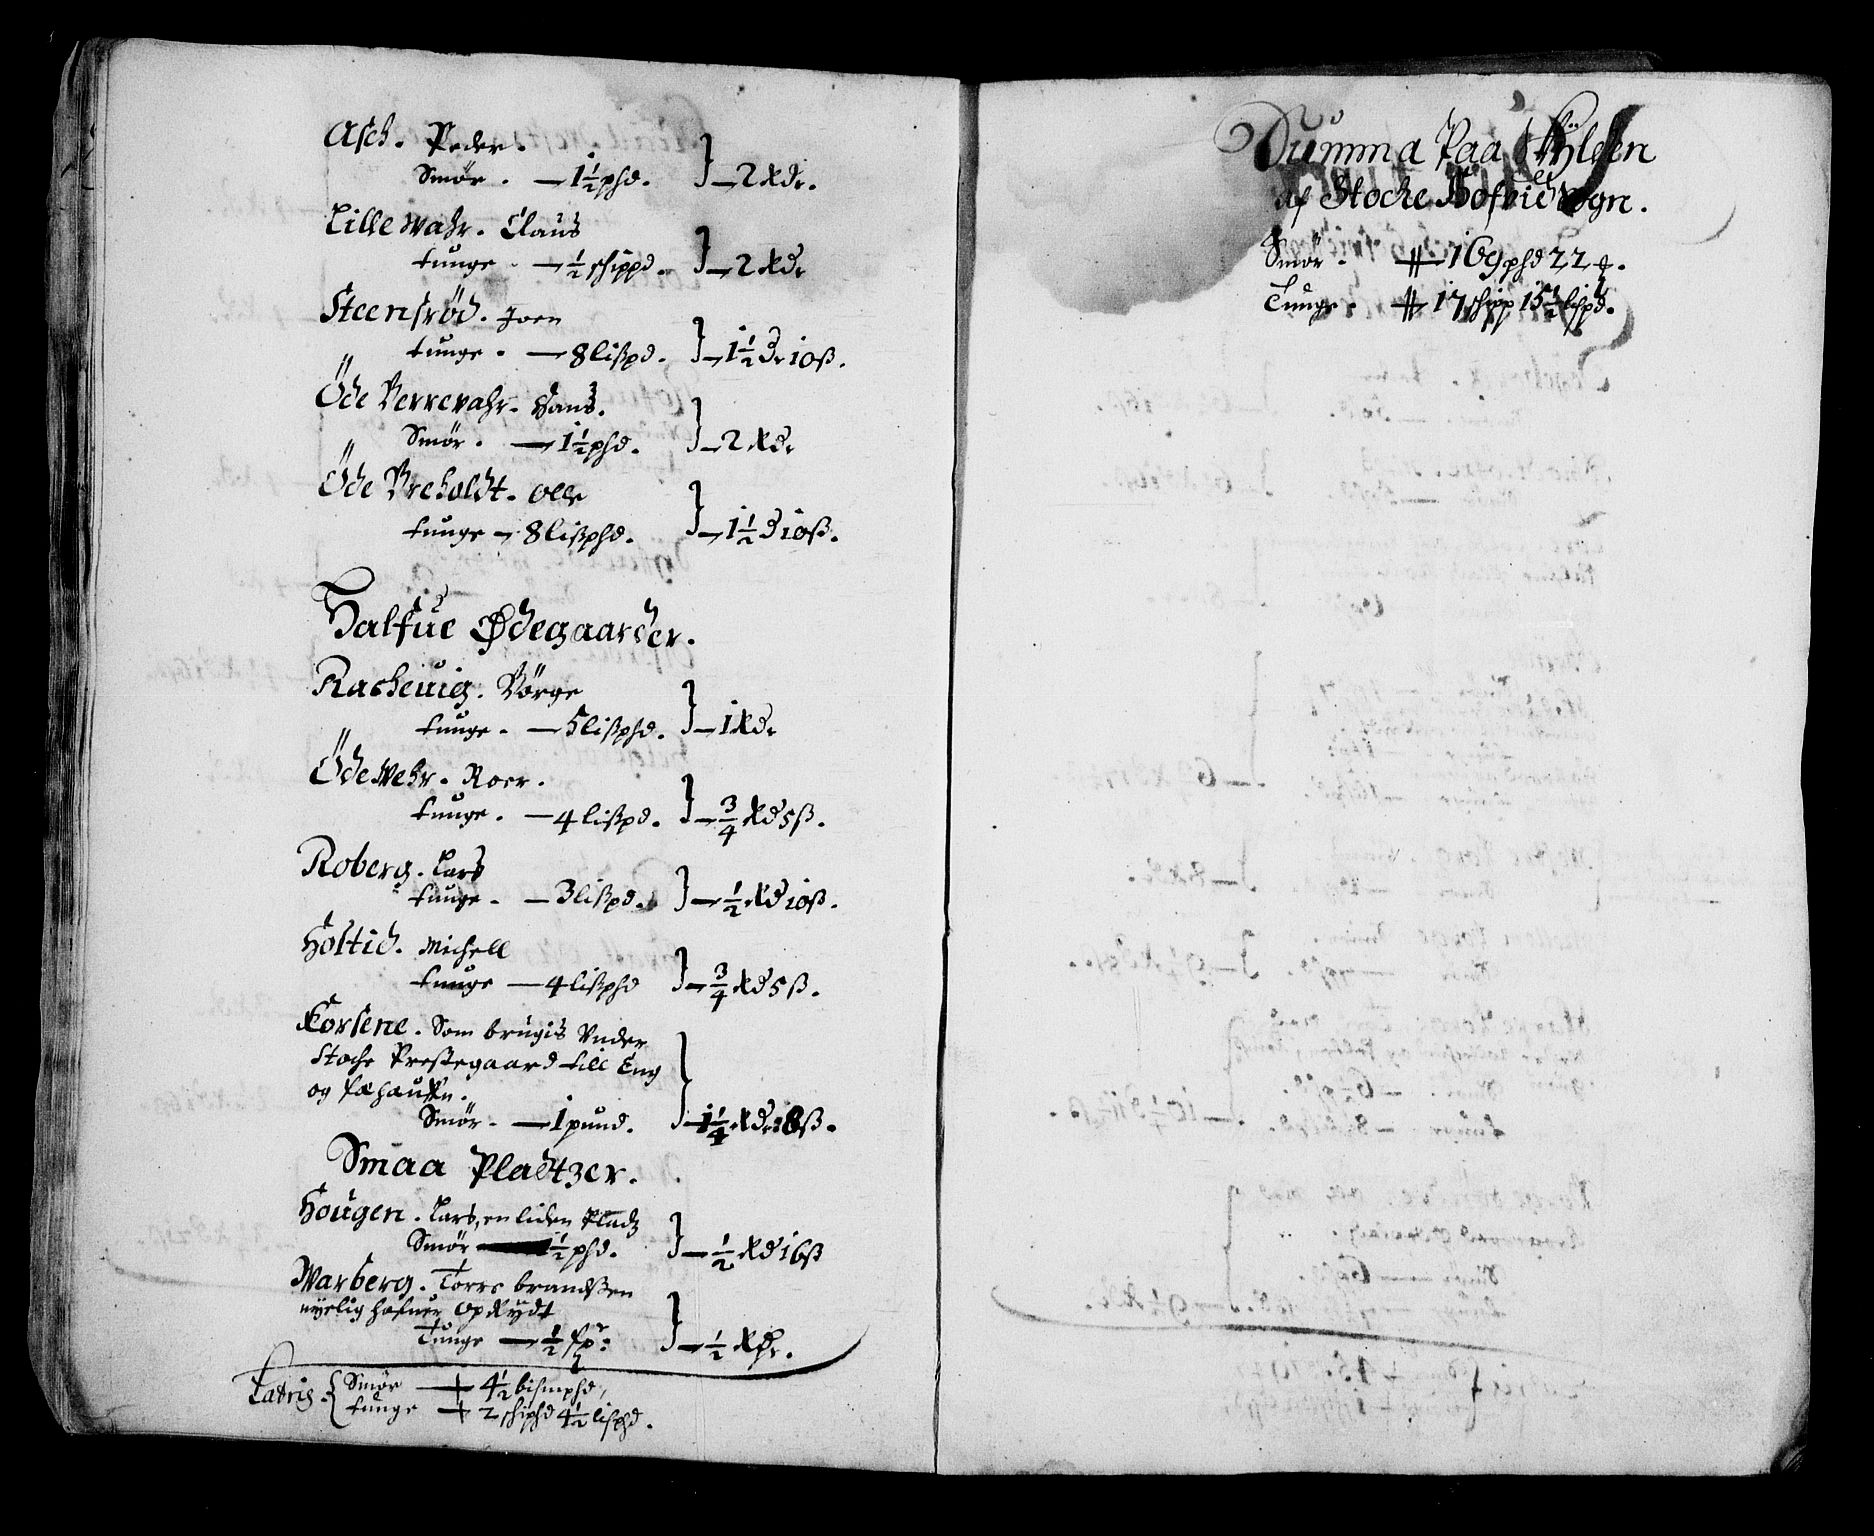 Asch. Peder.
Smör. — 1½ phd. } — 2 Rdr.
Lille Wahr. Claus
tunge. — ½ schippd. } — 2 Rdr
Steensröd. Joen
tunge. — 8 lißpd. } — 1½ dr 10 ß.
Öde Verrevahr. Hans.
Smör. — 1½ phd. } — 2 Rdr
Öde Vreholdt. Olle
tunge — 8 lißphd. } — 1½ d 10 ß.
Halfue Ødegaarder.
Racheuig. Börge
tunge. — 5 lißphd. } — 1 Rdr
Öde Wehr. Roer.
tunge. — 4 lißpd. } — ¾ Rd 5 ß.
Roberg. Lars
tunge. — 3 lißpd. } — ½ Rd 10 ß.
Holtid. Michell
tunge — 4 lißphd } — ¾ Rd 5 ß.
Korsene. Som brugis Vnder
Stoche Prestegaard till Eng
og fæhauffn.
Smör. — 1 pund. } — 1¼ Rdr 18 ß.
Smaa Pladtzer.
Hougen. Lars, en liden Pladtz
Smör — ½ phd. } — ½ Rd 16 ß
Warberg. Torre brandßen
nyelig hafuer opRydt
Tunge — ½ } — ½ Rdr.
Latris { Smör — 4½ bismphd,
tunge — 2 schiphd 4½ lisphd.
Summa Paa Skÿlden
af Stocke Hofvit Sogn.
Smör. 169 phd 22
Tunge. 17 schipp 15½ lispd.